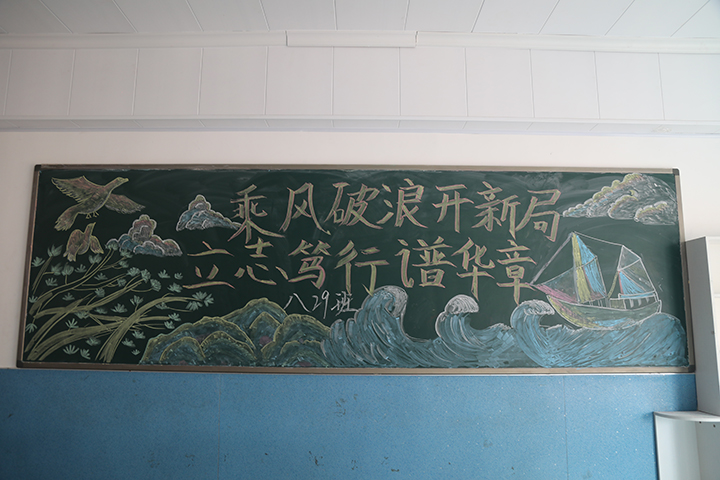 乘风破浪开新局
立志笃行谱华章
八29班